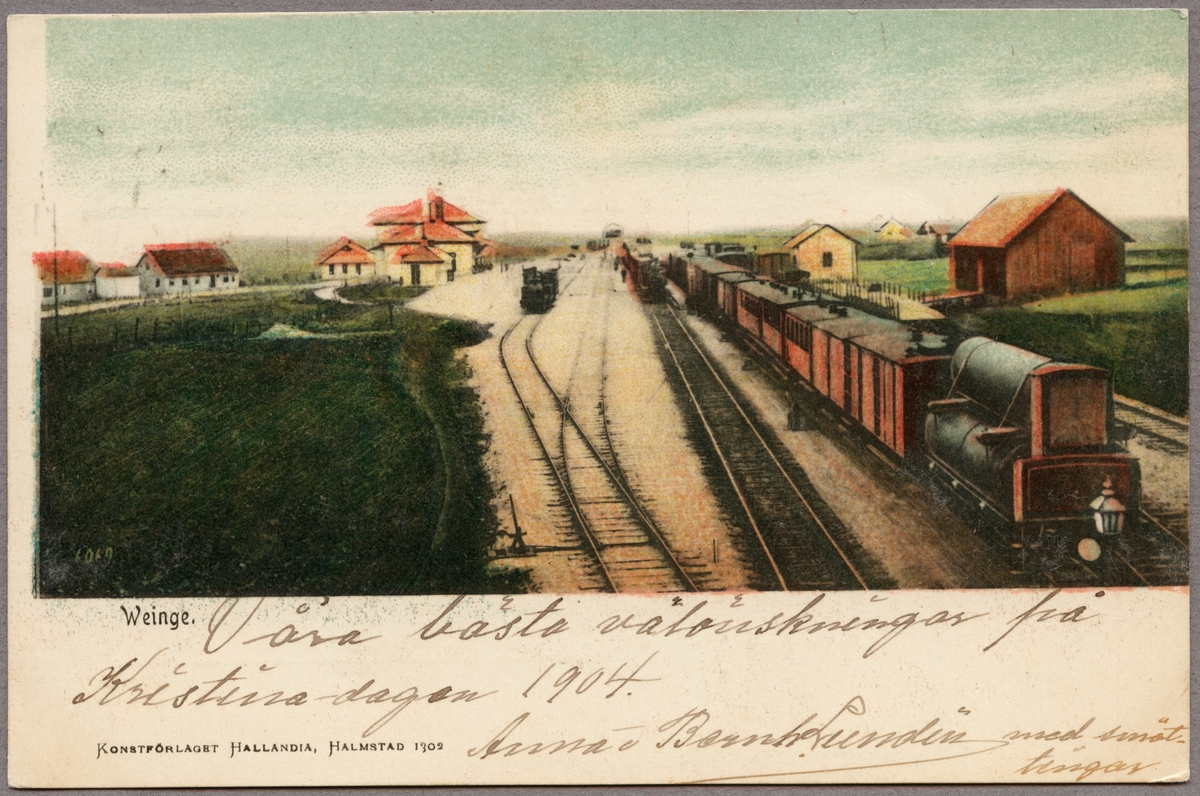 6069
Weinge.
Våra bästa välönskningar på
Kristina-dagen 1904.
KONSTFÖRLAGET HALLANDIA, HALMSTAD 1902
Anna o Bernh Lundin med småt-
tingar